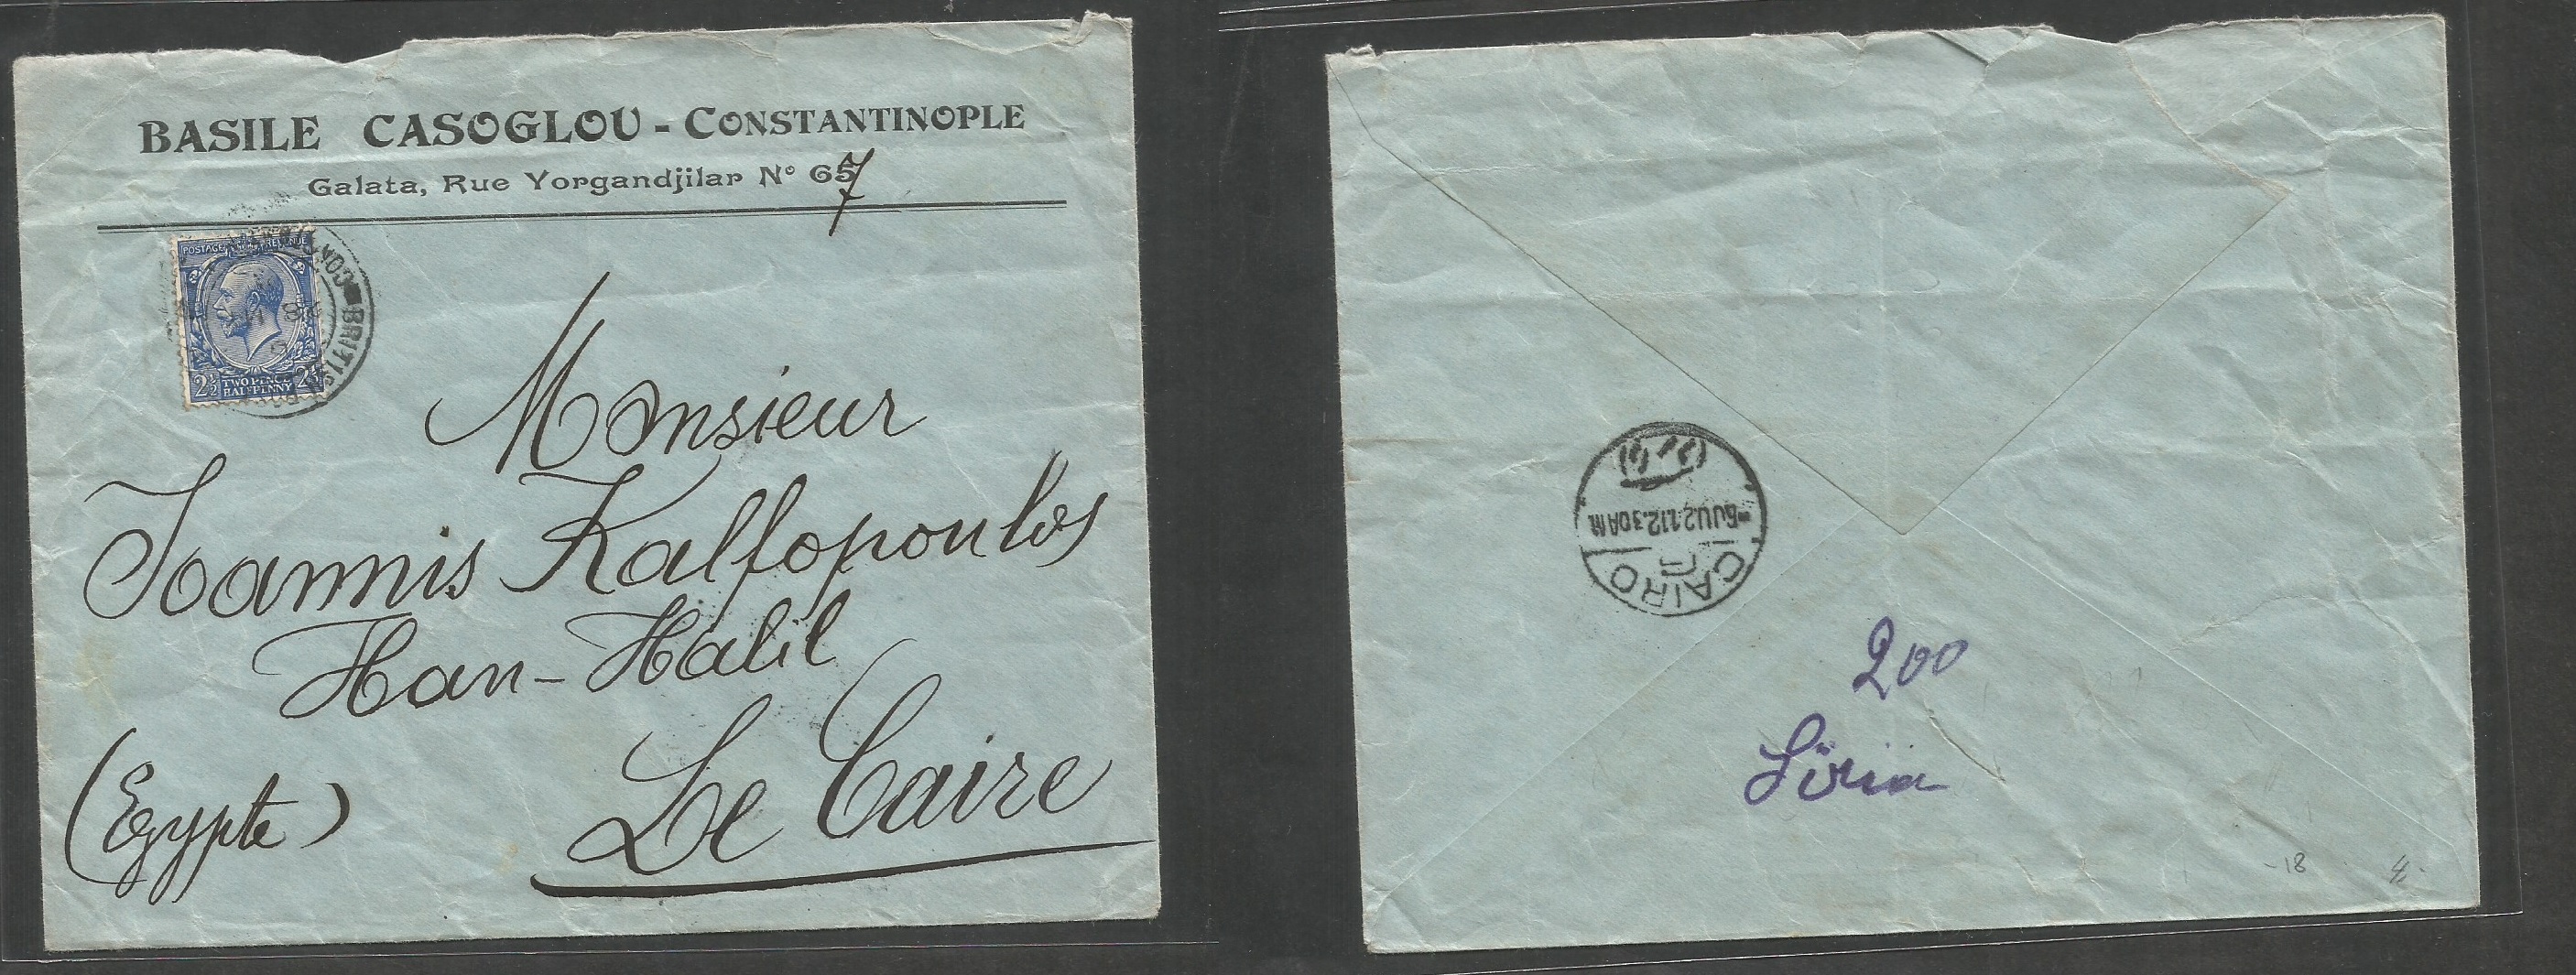 BASILE CASOGLOU - CONSTANTINOPLE
Galata, Rue Yorgandjilar N° 657
POSTAGE REVENUE
2½ TWO PENCE HALFPENNY 2½
BRITISH
Monsieur
Ioannis Kalfopoulos
Han-Halil
Le Caire
(Egypte)
-6JU.21.12.30AM
CAIRO
200
Sïria
-18